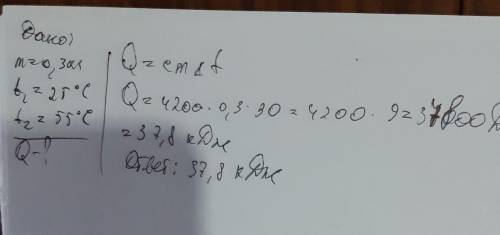 Дано:
m=0,3кг
t₁=25°C
t₂=55°C
Q-?
Q=cmΔt
Q=4200·0,3·30=4200·9=37800Д
=37,8 кДж
Ответ: 37,8 кДж